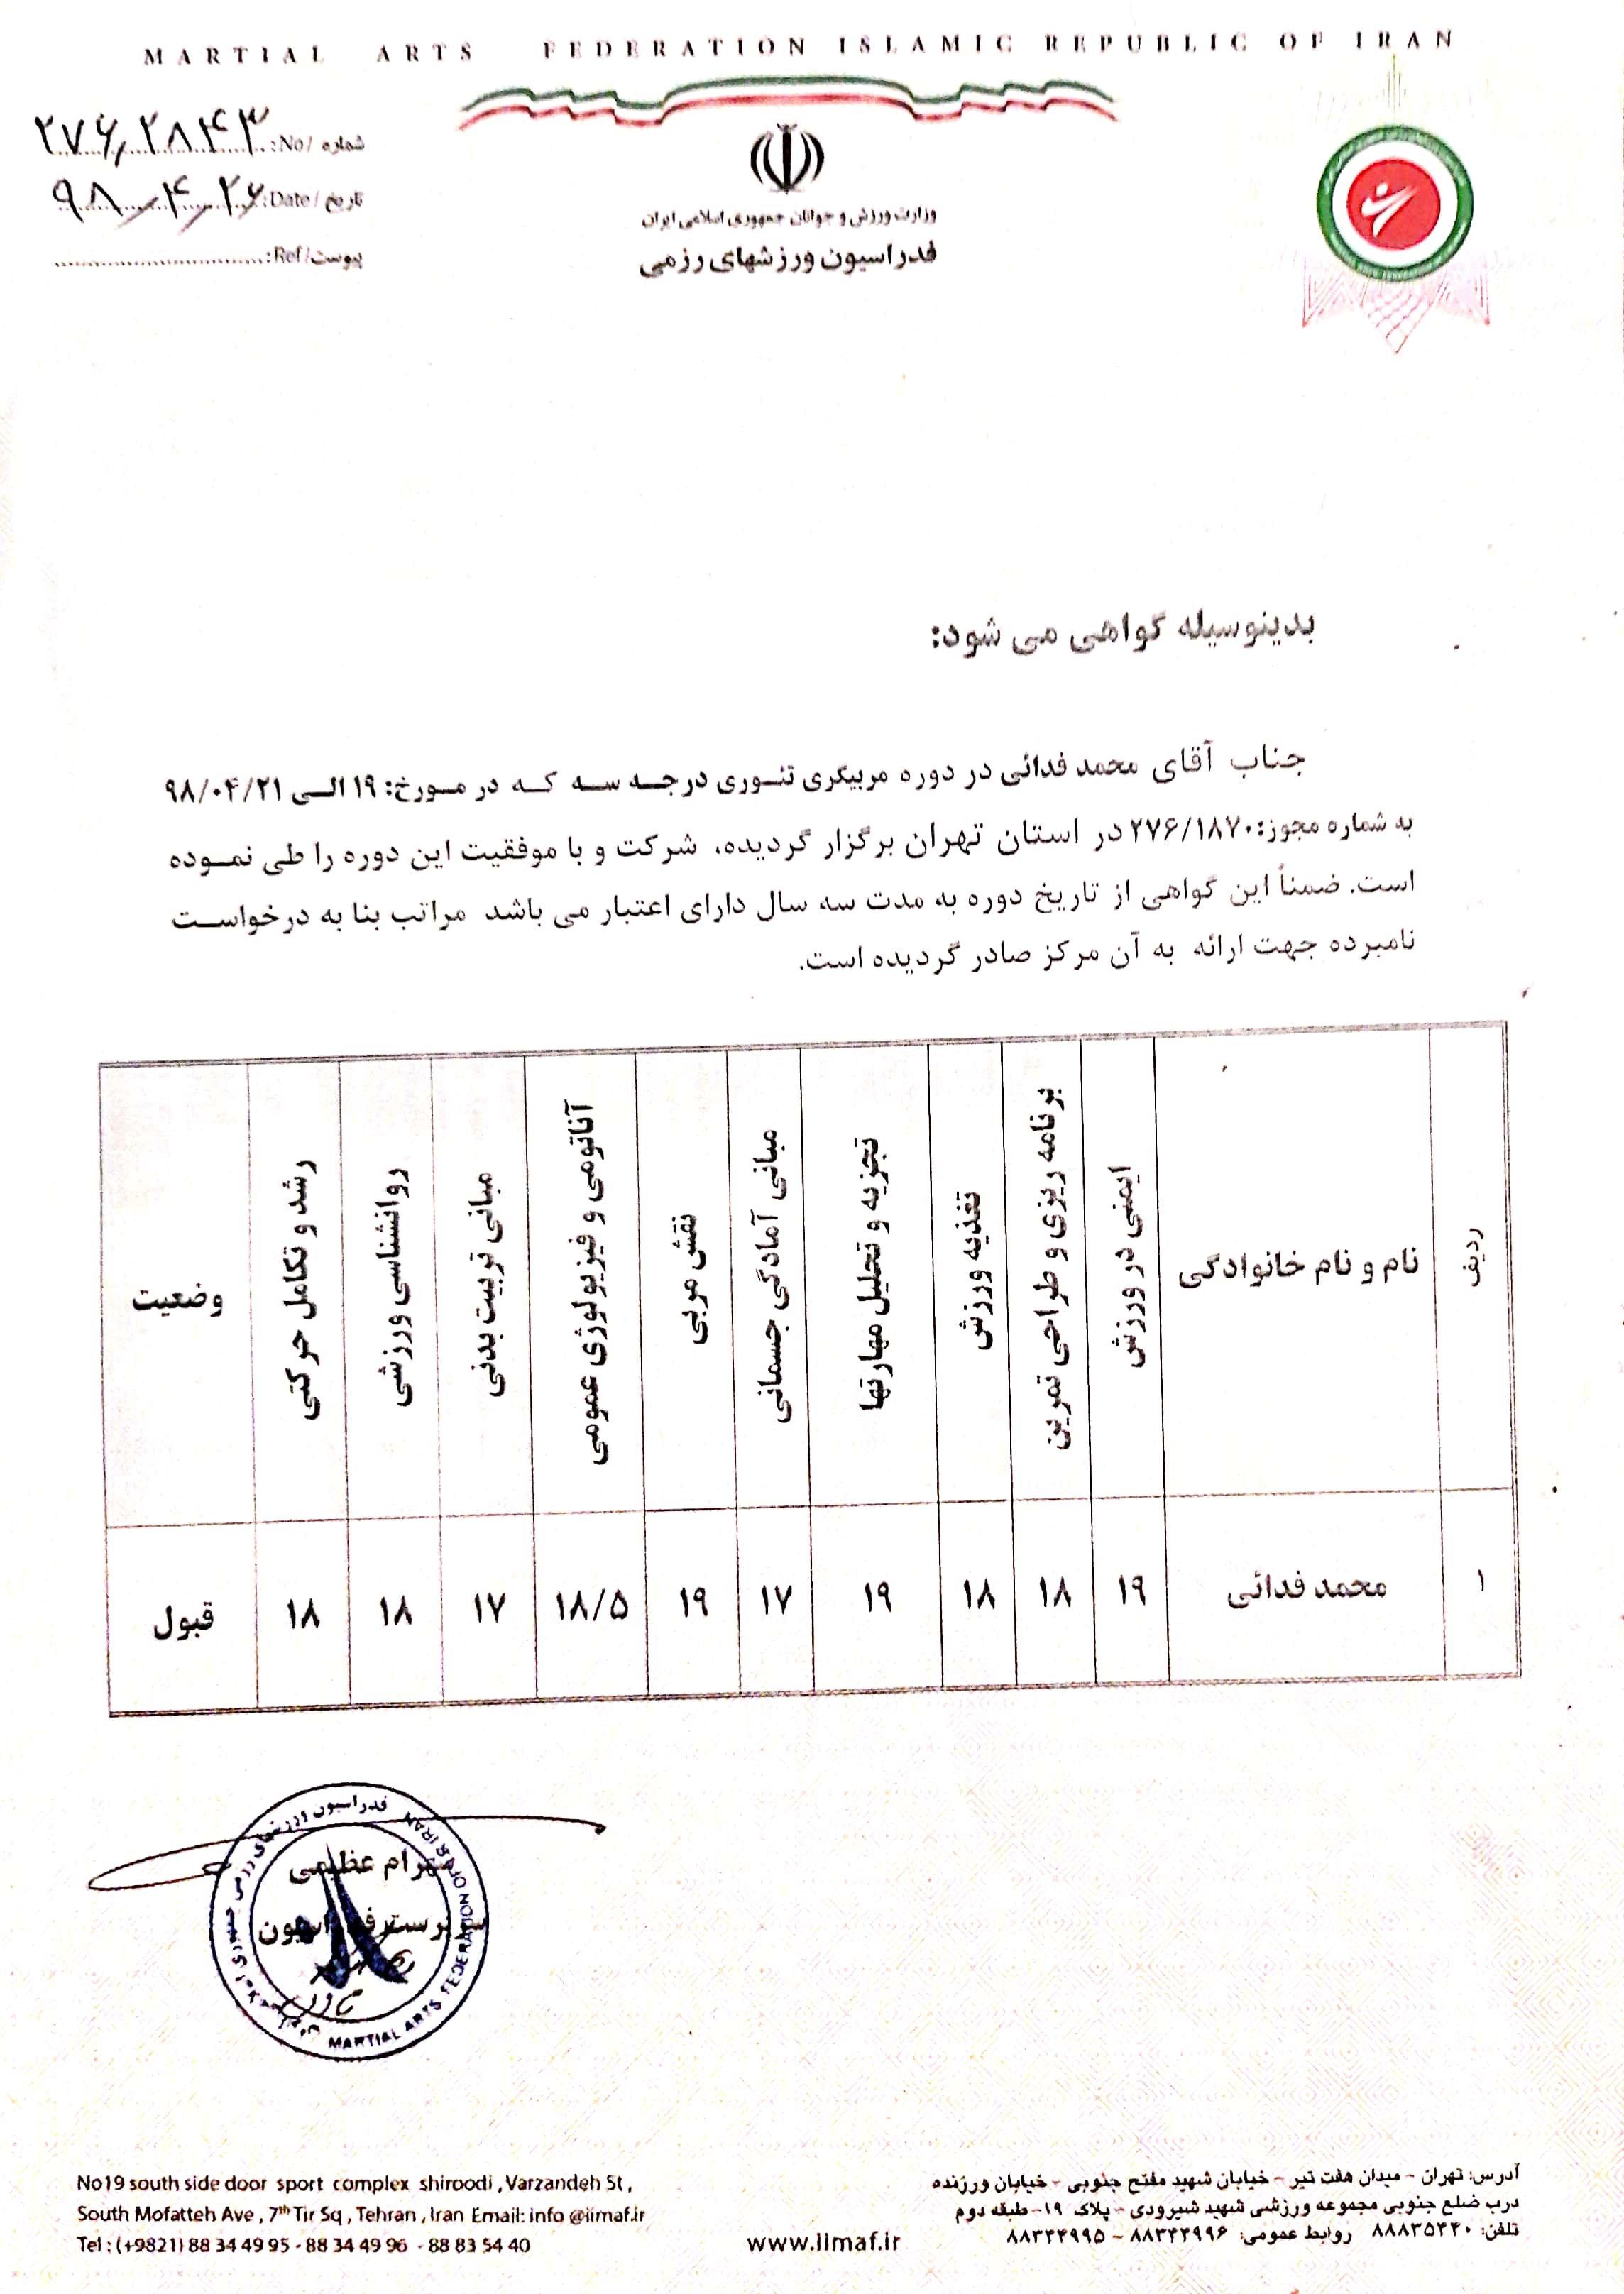 MARTIAL ARTS FEDERATION ISLAMIC REPUBLIC OF IRAN
شماره /No: ۲۷۶,۲۸۴۳
تاریخ /Date: ۹۸/۴/۲۶
پیوست/Ref:
وزارت ورزش و جوانان جمهوری اسلامی ایران
فدراسیون ورزشهای رزمی
بدینوسیله گواهی می شود:
جناب آقای محمد فدائی در دوره مربیگری تئوری درجه سه که در مورخ: ۱۹ الی ۹۸/۰۴/۲۱
به شماره مجوز: ۲۷۶/۱۸۷۰ در استان تهران برگزار گردیده، شرکت و با موفقیت این دوره را طی نموده
است. ضمناً این گواهی از تاریخ دوره به مدت سه سال دارای اعتبار می باشد مراتب بنا به درخواست
نامبرده جهت ارائه به آن مرکز صادر گردیده است.
ردیف
نام و نام خانوادگی
ایمنی در ورزش
برنامه ریزی و طراحی تمرین
تغذیه ورزش
تجزیه و تحلیل مهارتها
مبانی آمادگی جسمانی
نقش مربی
آناتومی و فیزیولوژی عمومی
مبانی تربیت بدنی
روانشناسی ورزشی
رشد و تکامل حرکتی
وضعیت
۱ محمد فدائی ۱۹ ۱۸ ۱۸ ۱۹ ۱۷ ۱۹ ۱۸/۵ ۱۷ ۱۸ ۱۸ قبول
فدراسیون ورزشهای رزمی جمهوری اسلامی
MARTIAL ARTS FEDERATION OF I.R IRAN
عظیمی
سرپرست فدراسیون
آدرس: تهران - میدان هفت تیر - خیابان شهید مفتح جنوبی - خیابان ورزنده
درب ضلع جنوبی مجموعه ورزشی شهید شیرودی - پلاک ۱۹- طبقه دوم
تلفن: ۸۸۸۳۵۴۴۰ روابط عمومی: ۸۸۳۴۴۹۹۶ - ۸۸۳۴۴۹۹۵
www.iimaf.ir
No19 south side door sport complex shiroodi , Varzandeh St ,
South Mofatteh Ave , 7th Tir Sq , Tehran , Iran Email: info @iimaf.ir
Tel : (+9821) 88 34 49 95 - 88 34 49 96 - 88 83 54 40